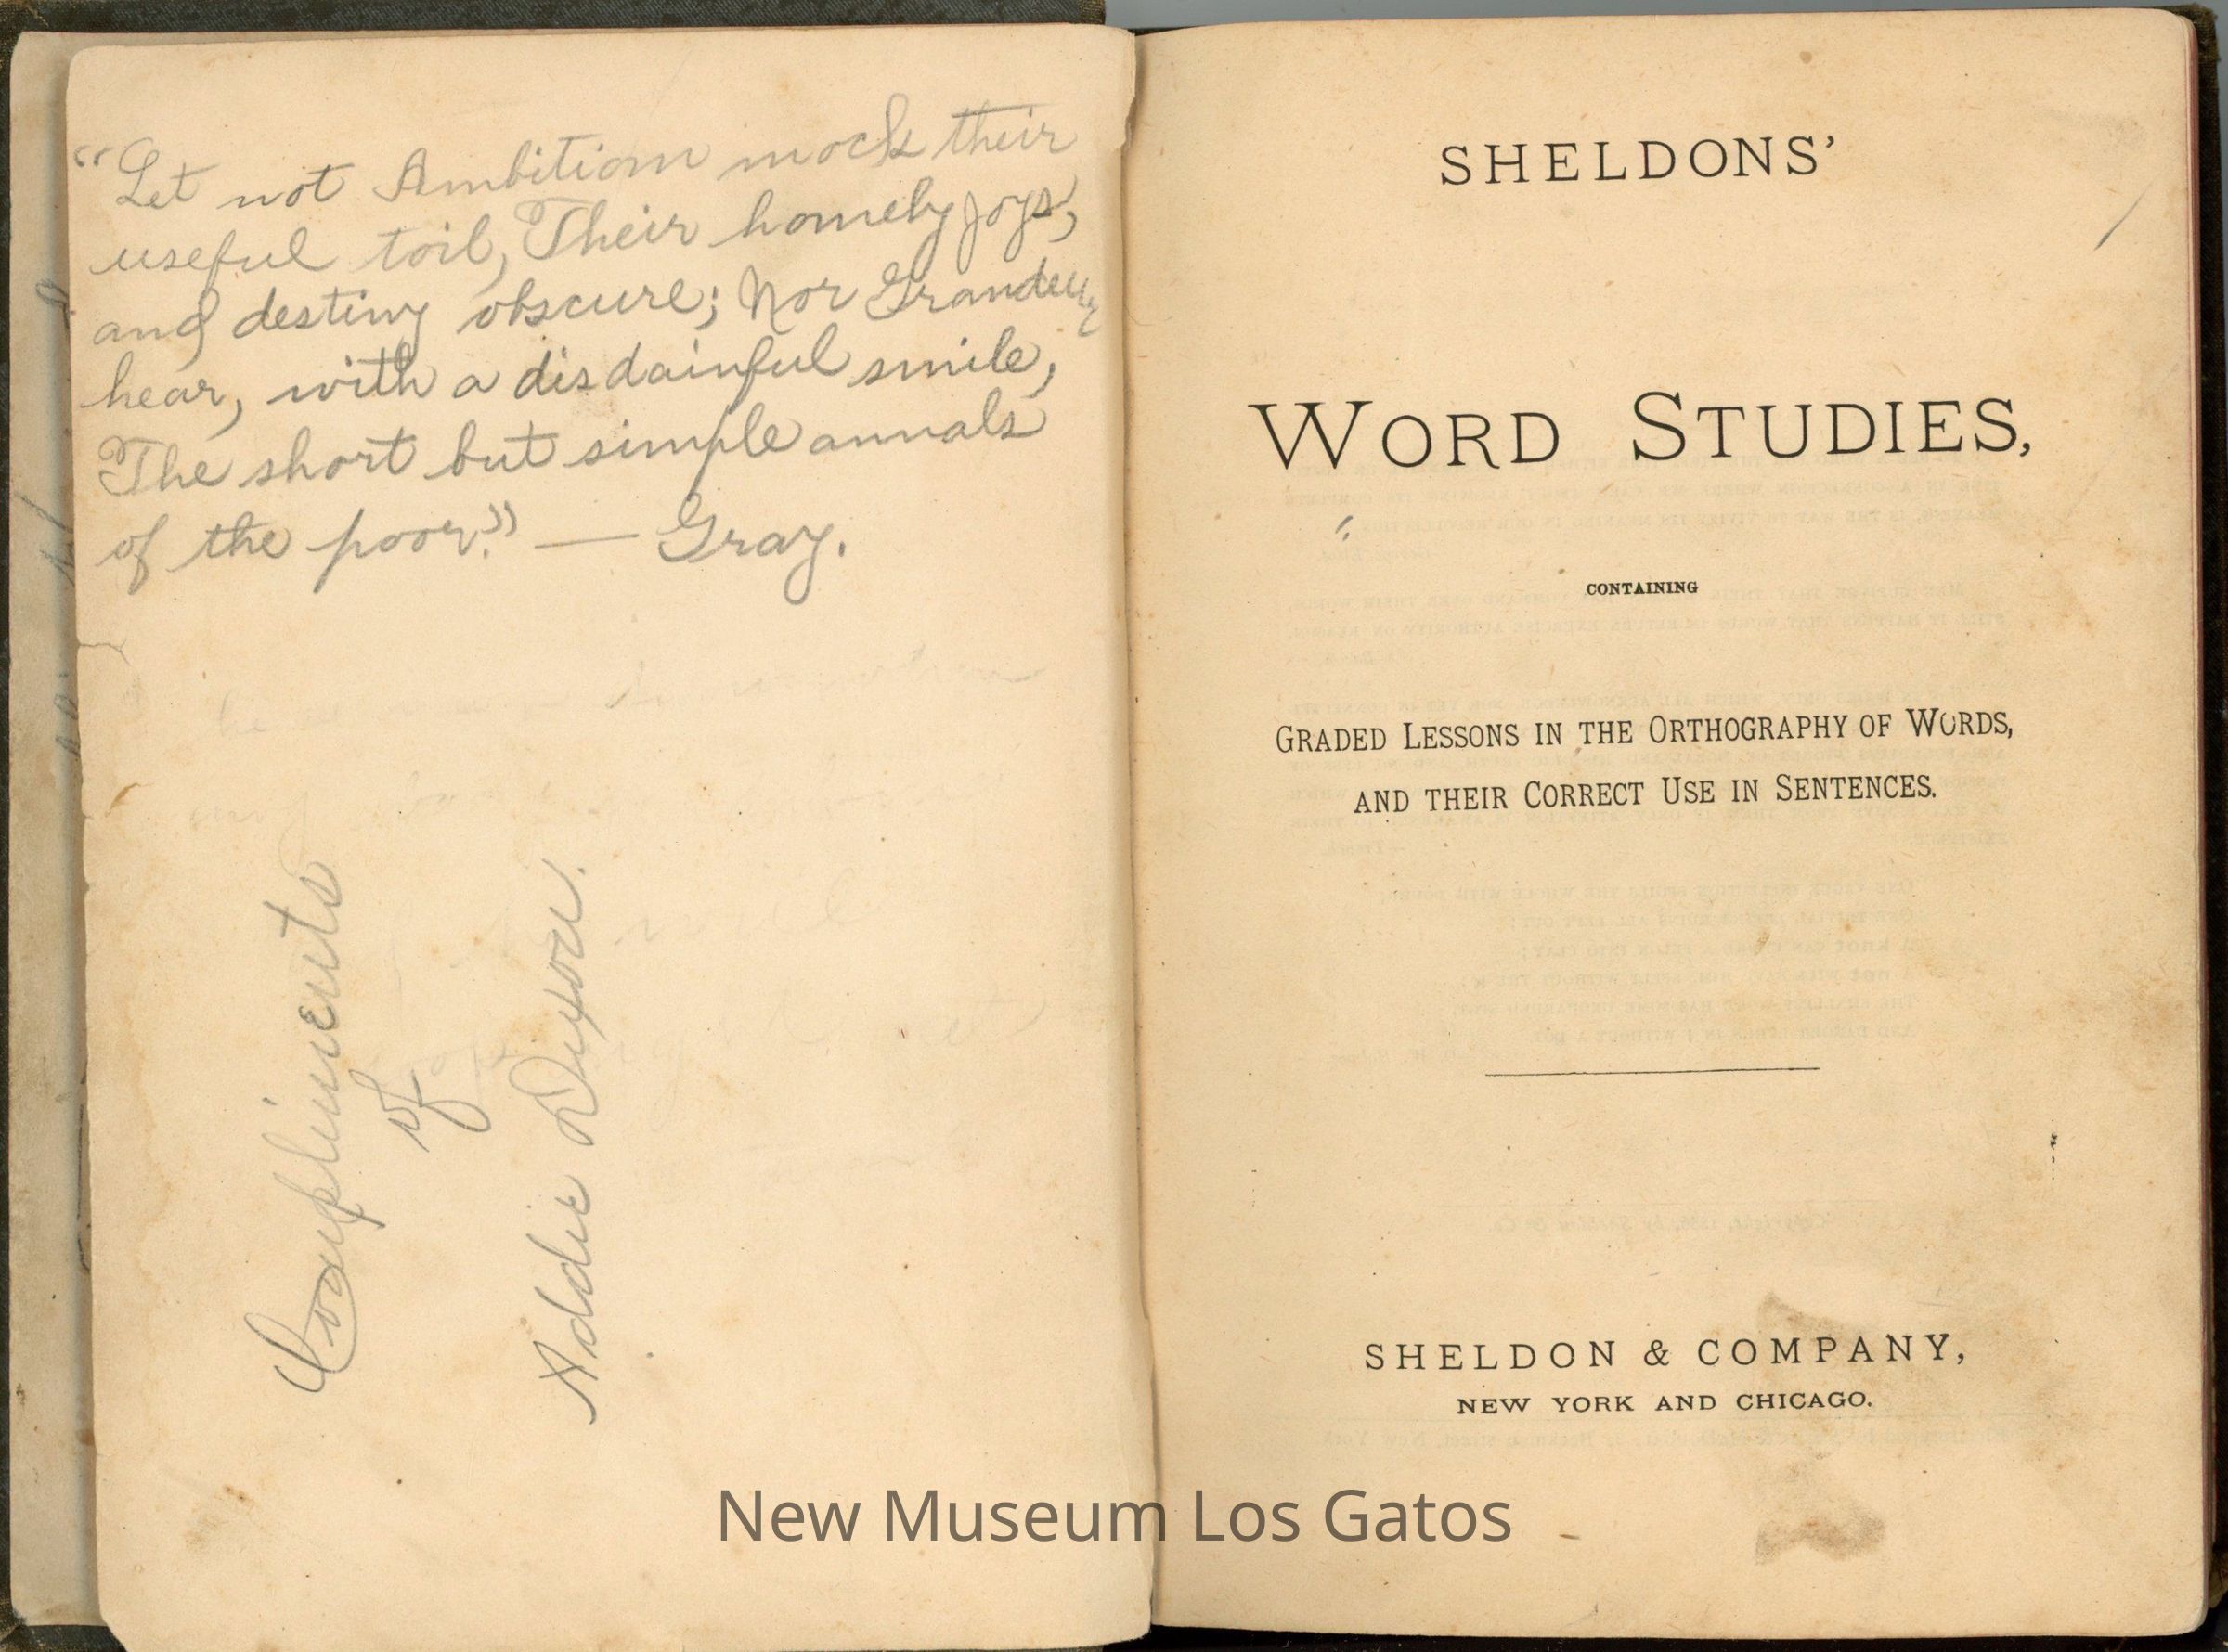 “Let not Ambition mock their
useful toil, Their homely joys,
and destiny obscure; Nor Grandeur
hear, with a disdainful smile,
The short but simple annals
of the poor.” — Gray.
Compliments
of
Addie Dixon.
SHELDONS’
WORD STUDIES,
CONTAINING
GRADED LESSONS IN THE ORTHOGRAPHY OF WORDS,
AND THEIR CORRECT USE IN SENTENCES.
SHELDON & COMPANY,
NEW YORK AND CHICAGO.
New Museum Los Gatos